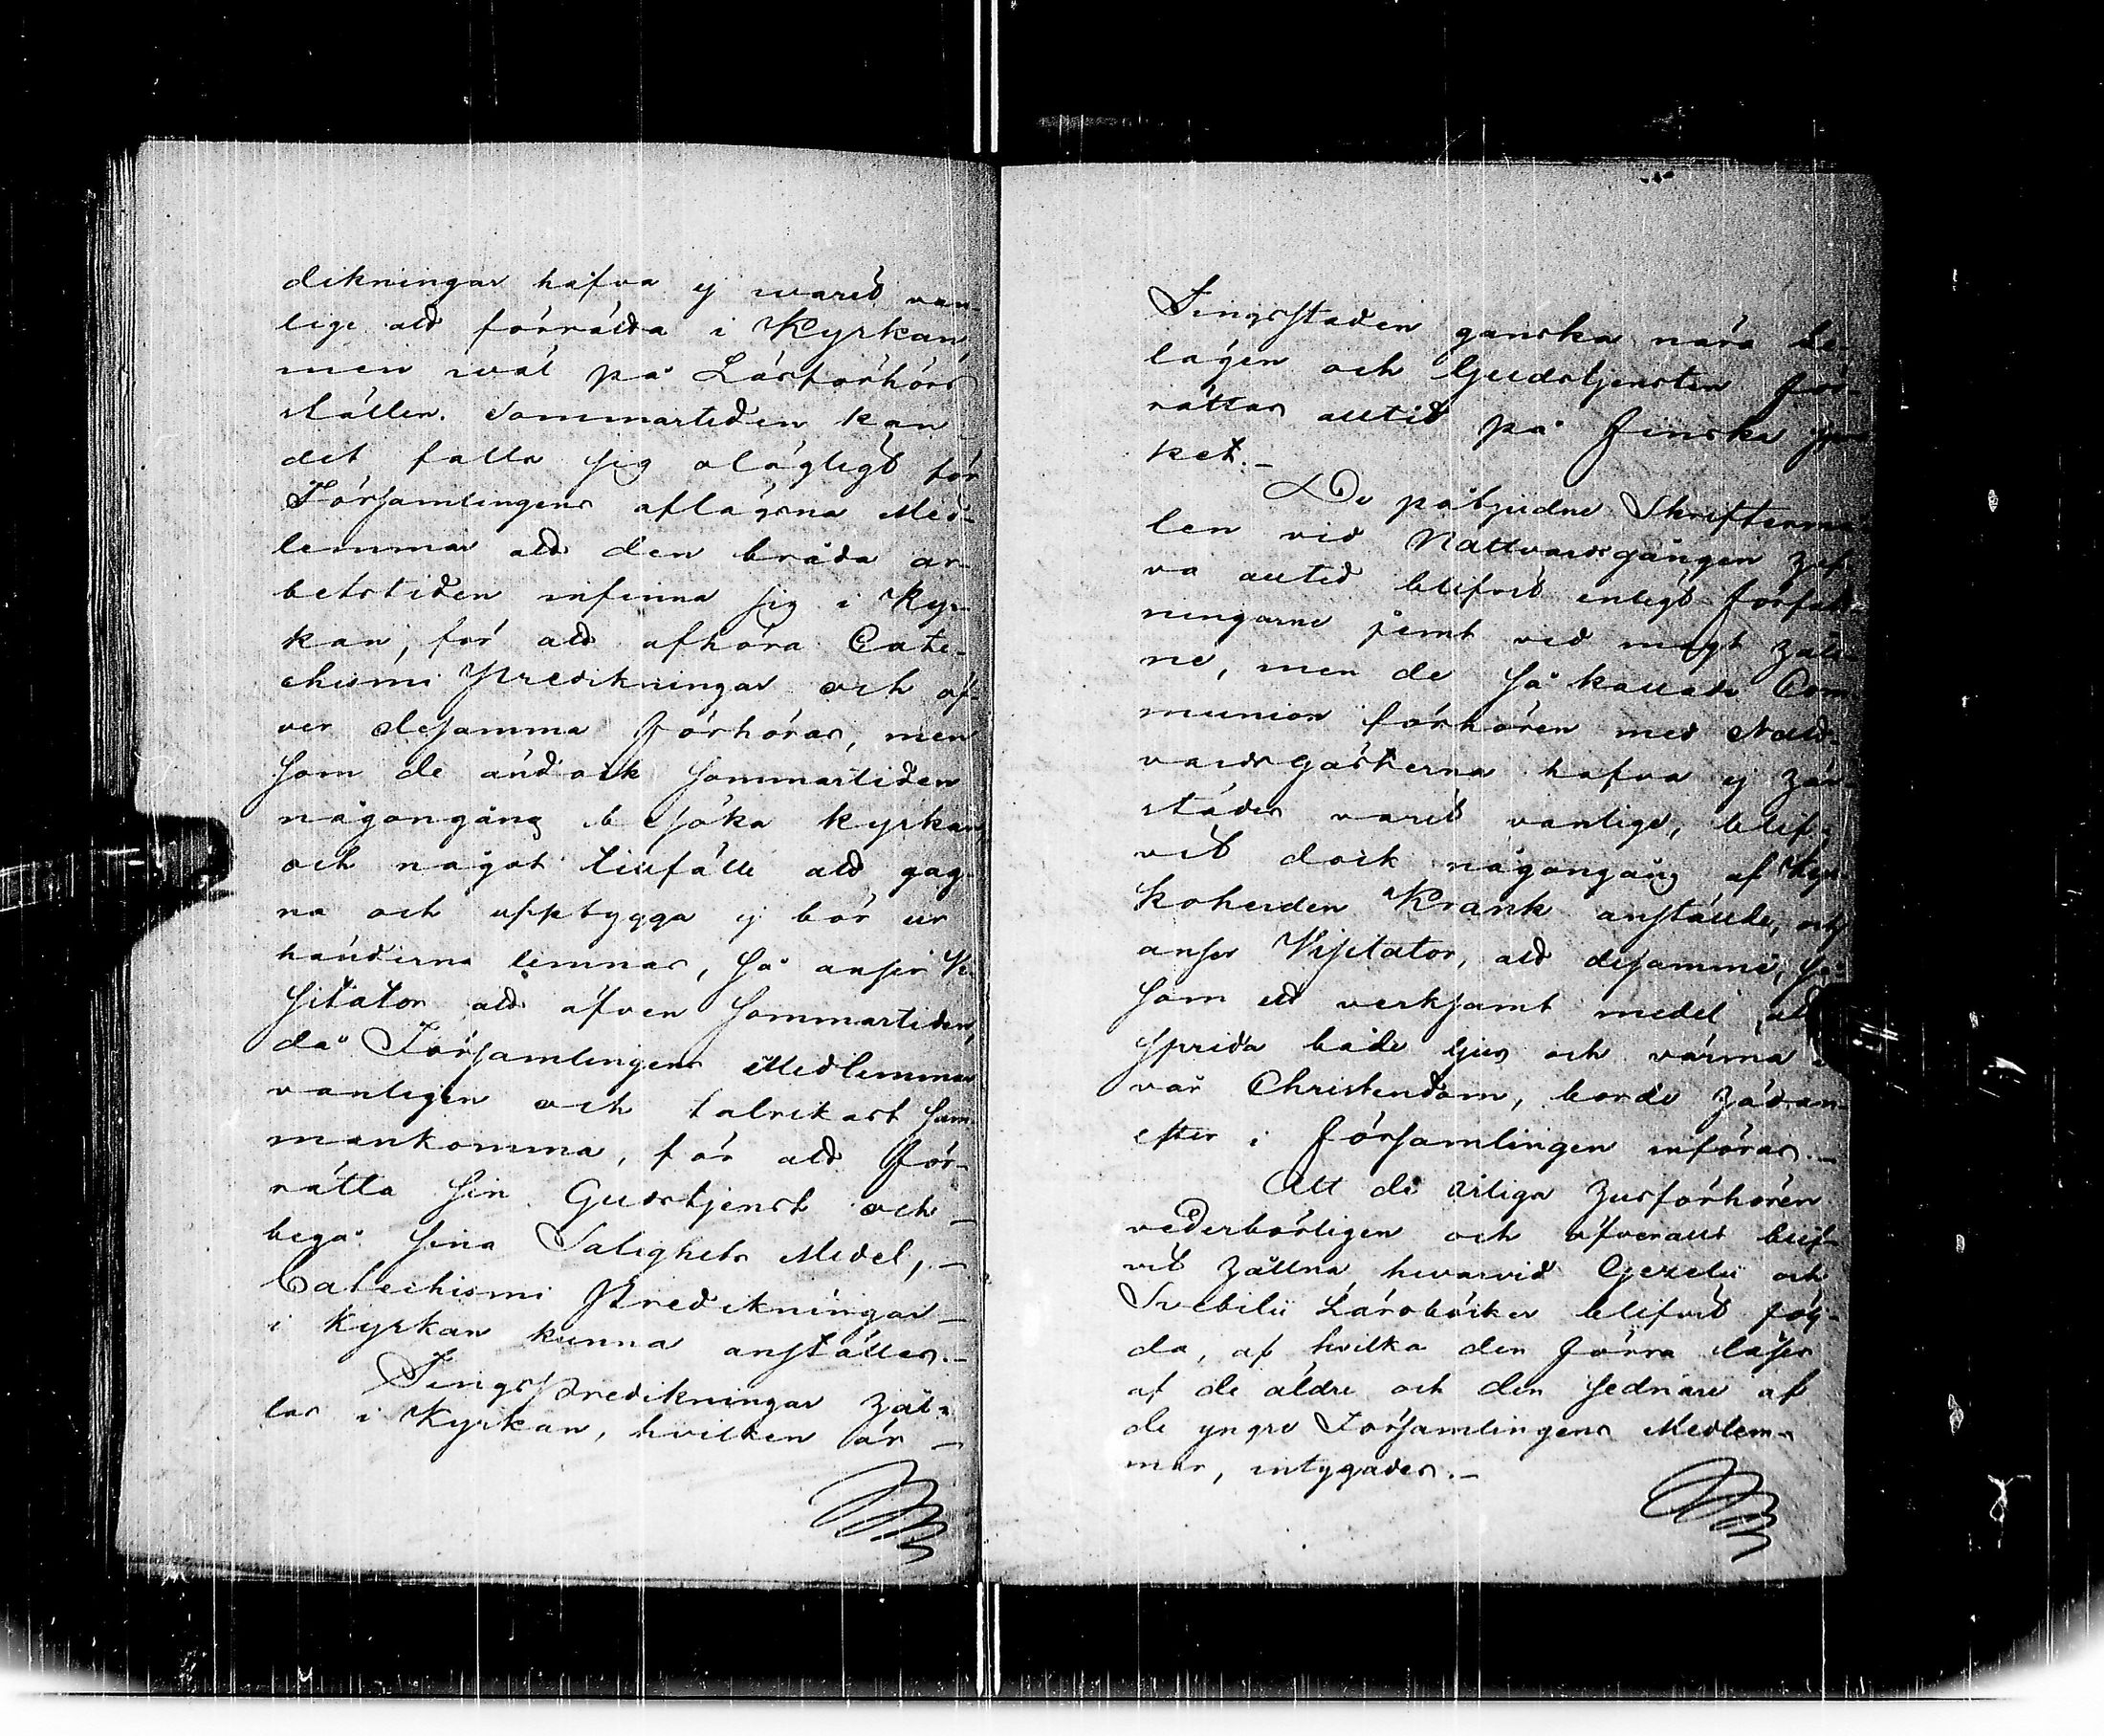 dikningar hafva ej warit van-
lige att förrätta i Kyrkan,
men wäl på Läsförhörs
ställen. Sommartiden kan
det falla sig olägligt för
Församlingens aflägsna Med-
lemmar att den bråda ar-
betstiden infinna sig i Kyr-
kan, för att afhöra Cate-
chismi Predikningar och öf-
ver desamma förhöras, men
som de ändock sommartiden
någongång besöka kyrkan
och något tillfälle att gag-
na och uppbygga ej bör ur
händerna lemnas, så anser Vi-
sitator att äfven sommartiden,
då Församlingens Medlemmar
vanligen och talrikast sam-
mankomma, för att för-
rätta sin Gudstjenst och
begå sina Salighets Medel, -
Catechismi Predikningar
i Kyrkan kunna anställas. -
Tingspredikningar hål-
las i Kyrkan, hvilken är -
Tingsstaden ganska nära be-
lägen och Gudstjensten för-
rättas alltid på finska språ-
ket. -
De påbjudne Skriftermå-
len vid Nattvardsgången haf-
va alltid blifvit enligt författ-
ningarne jemt vid magt håll-
ne, men de så kallade Com-
munion förhören med Natt-
vardsgästerna hafva ej här-
städes varit vanlige, blif-
vit dock någongång af Kyr-
koherden Krank anställde, och
anser Visitator, att desamme, så-
som ett verksamt medel att
sprida både ljus och värma i
vår Christendom, borde hädan-
efter i församlingen införas. -
Att de årliga husförhören
vederbörligen och öfverallt blif-
vit hållna, hvarvid Gezelii och
Svebilii Läroböcker blifvit följ-
da, af hvilka den förra läses
af de äldre och den sednare af
de yngre Församlingens Medlem-
mar, intygades. -